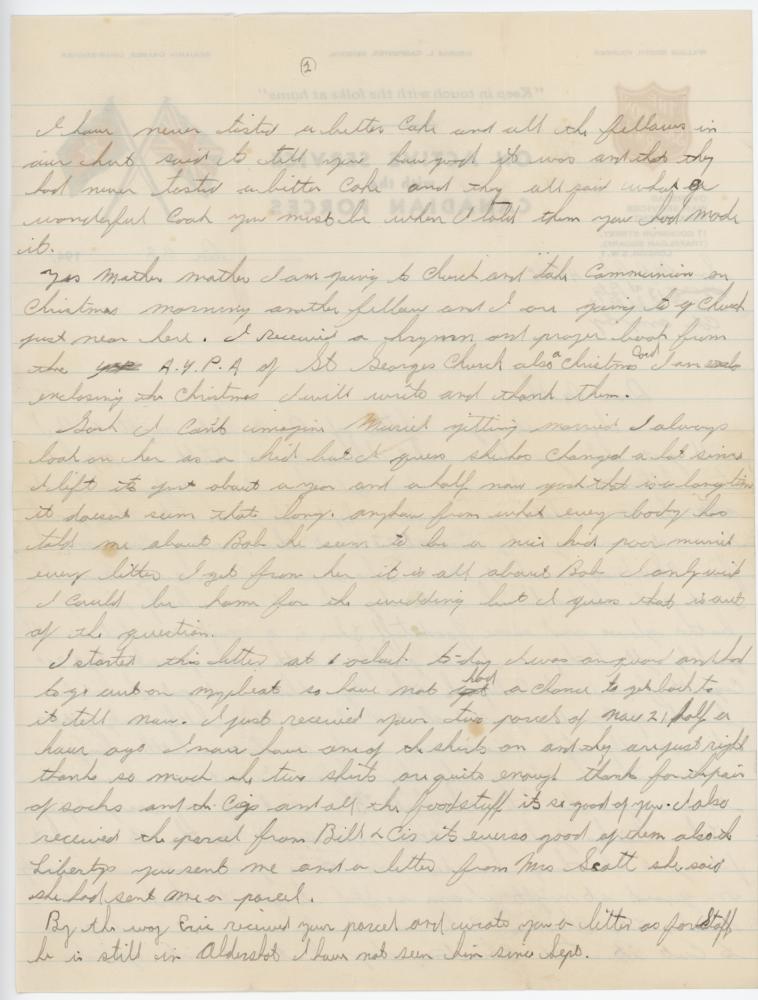 1
I have never tasted a better Cake and all the fellows in
our hut said to tell you how good it was and that they
had never tasted a better Cake and they all said what a
wonderful Cook you must be when I told them you had made
it.
Yes Mother mother I am going to Church and take Communion on
Christmas morning another fellow and I are going to a Church
just near here. I received a hymn and prayer book from
the A.Y.P.A of St Georges Church also a Christmas Card I am
enclosing the Christmas I will write and thank them.
Gosh I can't imagine Muriel getting married I always
look on her as a kid but I guess she has changed a lot since
I left its just about a year and a half now gosh that is a long time
it doesnt seem that long. anyhow from what every body has
told me about Bob he seem to be a nice kid poor muriel
every letter I get from her it is all about Bob I only wish
I could be home for the wedding but I guess that is out
of the question.
I started this letter at oclock to-day I was on guard and had
to go out on my beat so have not had a chance to get back to
it till now. I just received your two parcel of nov 21 half a
hour ago I now have one of the shirts on and they are just right
thanks so much the two shirts are quite enough thanks for the pair
of socks and the Cigs and all the food stuff its so good of you. I also
received the parcel from Bill & Cis its ever so good of them also the
Libertys you sent me and a letter from Mrs Scott she said
she had sent me a parcel.
By the way Eric received your parcel and wrote you a letter as for Staff
he is still in Aldershot I have not seen him since Sept.